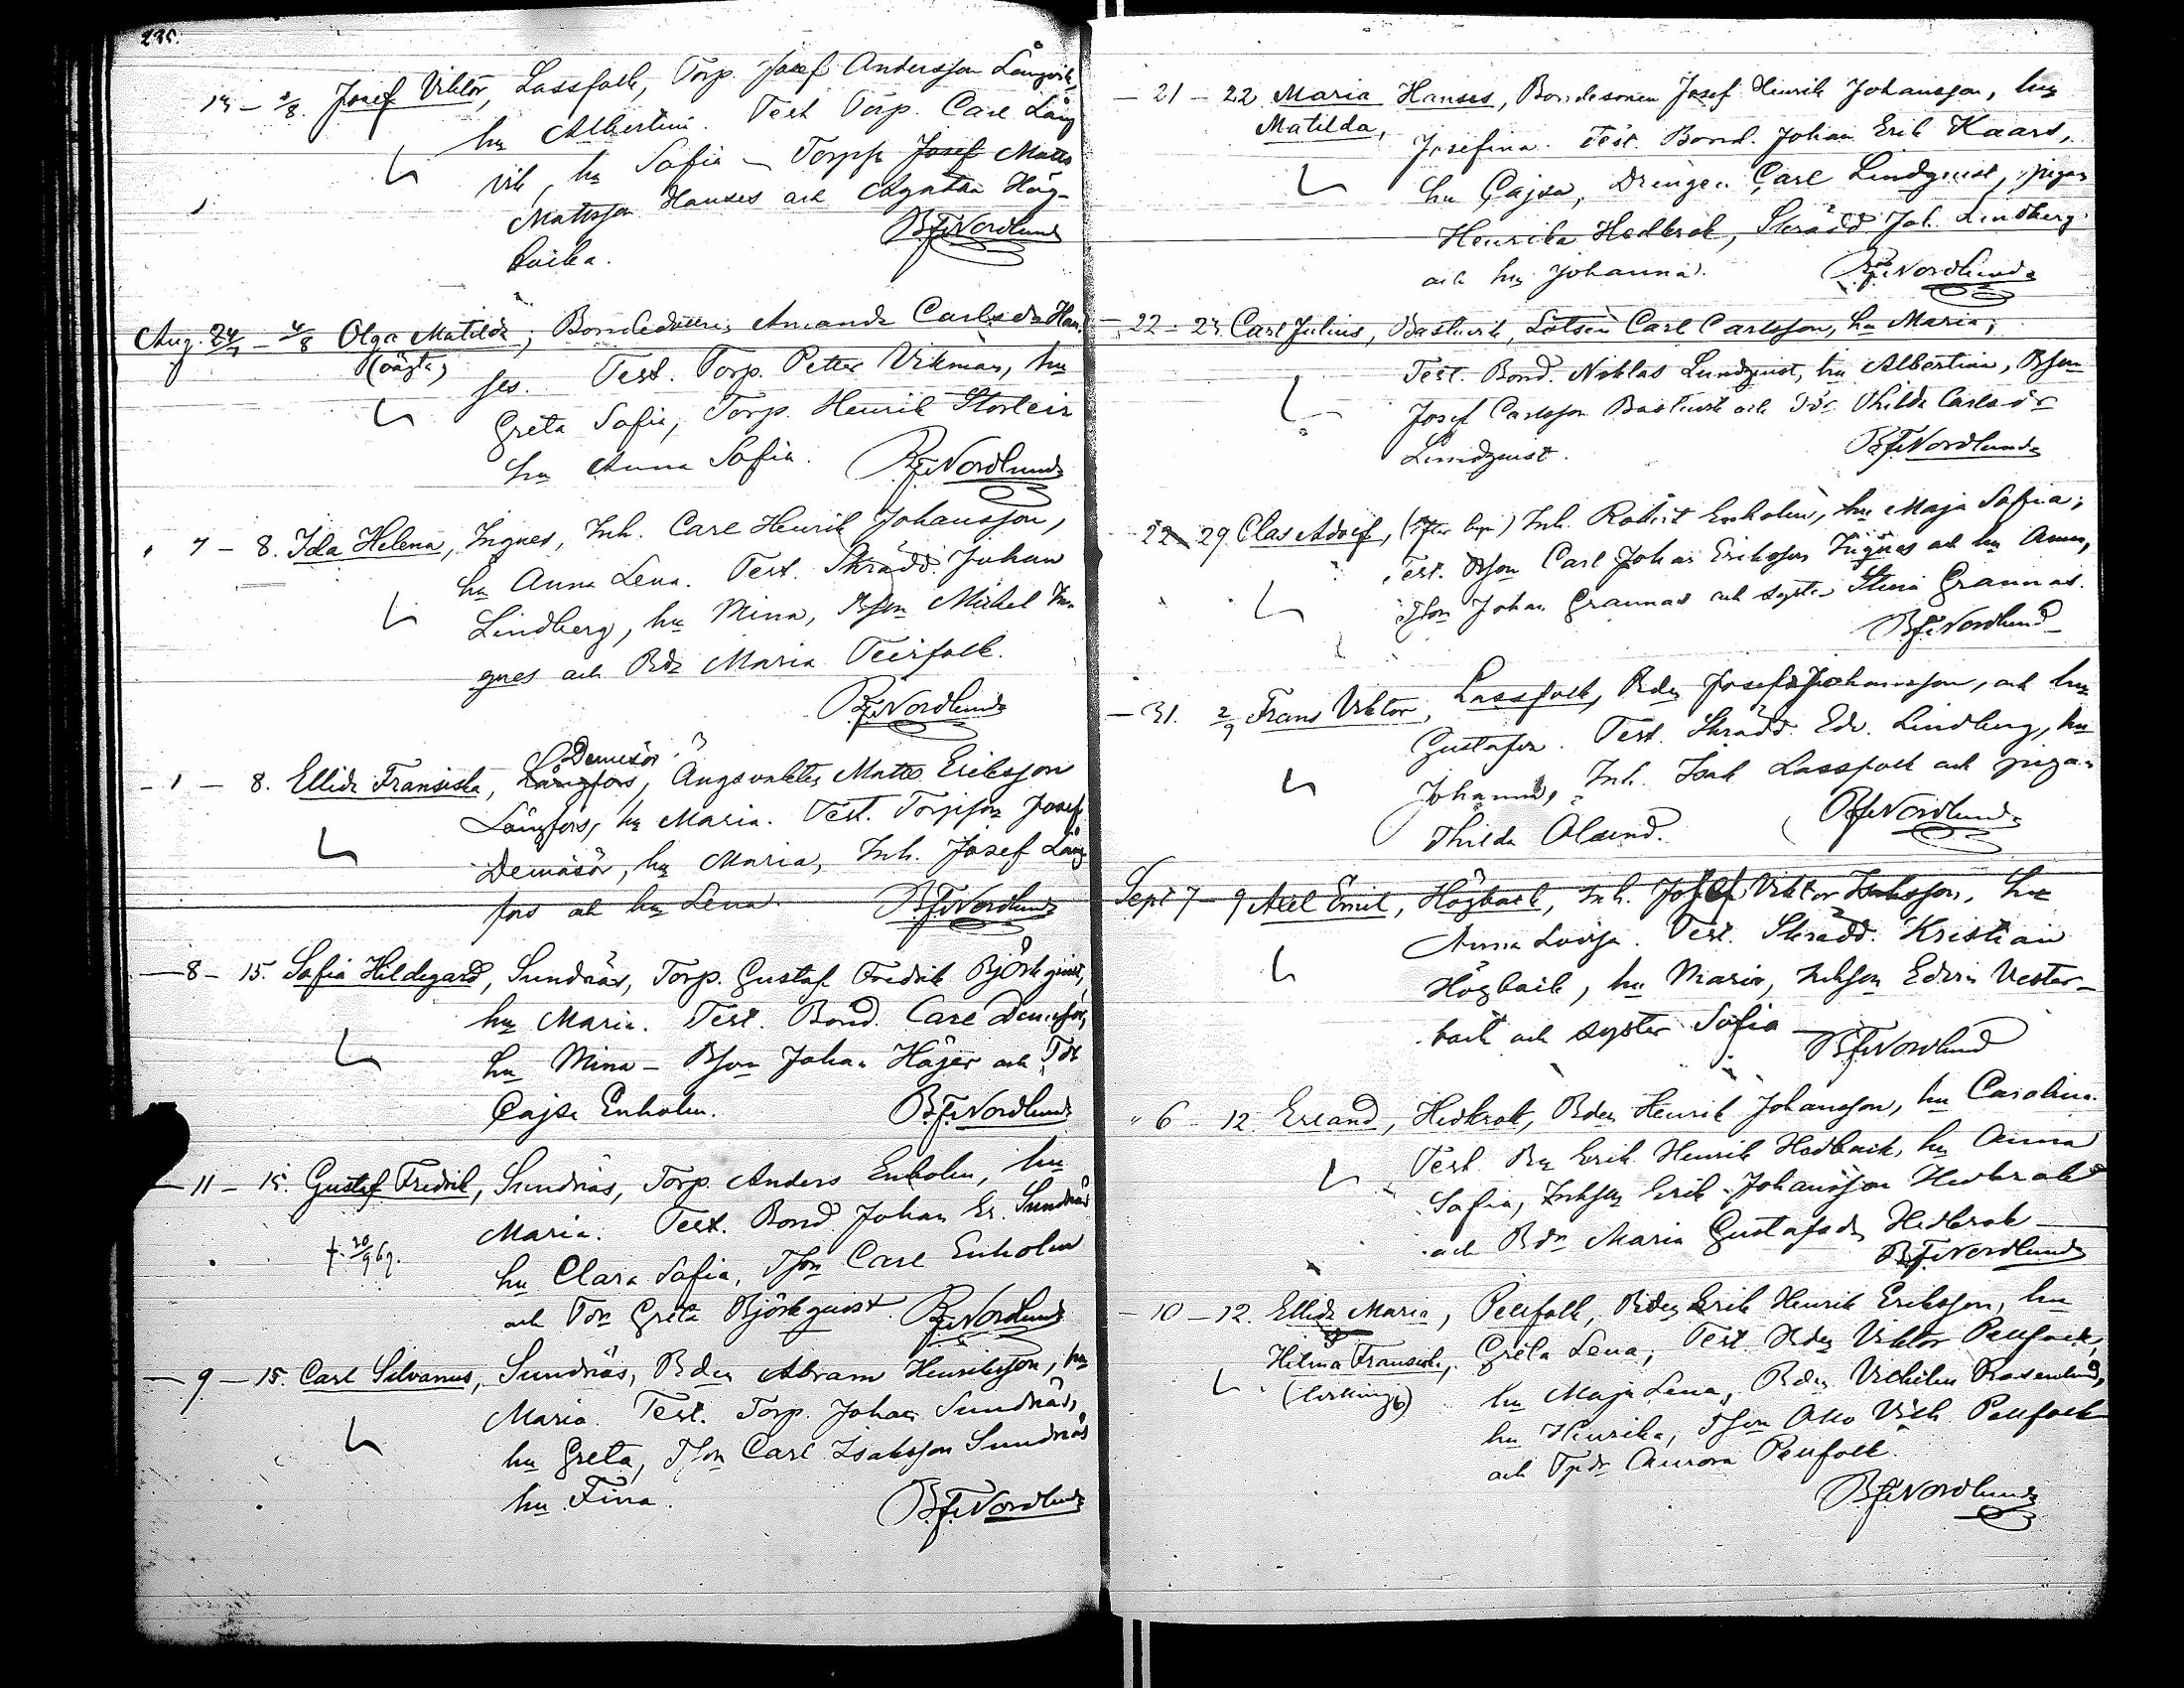 235.
13 - 1/8. Josef Viktor, Lassfolk, Torp. Josef Andersson Långvik,
hu Albertina. Test Torp. Carl Lång
vik, hu Sofia - Torpsn Josef Matts
Mattsson Hanses och Agatha Hög-
backa. BFNordlund
Aug. 24/7 - 4/8 Olga Matilda, Bondedottern Amanda Carlsdr Han-
(oägta) ses. Test. Torp. Petter Vikman, hu
Greta Sofia, Torp. Henrik Storteir
hu Anna Sofia. BFNordlund
" 7 - 8. Ida Helena, Ingnes, Inh. Carl Henrik Johansson,
hu Anna Lena. Test. Skrädd. Johan
Lindberg, hu Mina, Bson Mickel In-
gnes och Bdr Maria Teirfolk.
BFNordlund
Demisör
- 1 - 8. Ellida Fransiska, Långfors, Ängsvakten Matts Eriksson
Långfors, hu Maria. Test. Torpson Josef
Demisör, hu Maria, Inh. Josef Lång-
fors och hu Lena. BFNordlund
- 8 - 15. Sofia Hildegard, Sundnäs, Torp. Gustaf Fredrik Björkquist,
hu Maria. Test. Bond. Carl Demisör,
hu Mina - Bson Johan Häger och Tdr
Cajsa Enholm. BFNordlund
- 11 - 15. Gustaf Fredrik, Sundnäs, Torp. Anders Enholm, hu
Maria. Test. Bond. Johan Er. Sundnäs
†. 20/9 69. hu Clara Sofia, Tson Carl Enholm
och Tdr Greta Björkquist. BFNordlund
- 9 - 15. Carl Silvanus, Sundnäs, Bden Abram Henriksson, hu
Maria. Test. Torp. Johan Sundnäs,
hu Greta, Tson Carl Isaksson Sundnäs
hu Fina. BFNordlund
- 21 - 22 Maria Hanses, Bondesonen Josef Henrik Johansson, hu
Matilda, Josefina. Test. Bond. Johan Erik Kaars,
hu Cajsa, Drängen Carl Lindqvist, pigan
Henrika Hedkrok, Skrädd Joh. Lindberg
och hu Johanna. BFNordlund
- 22 - 23. Carl Julius, Bastuvik, Lotsen Carl Carlsson, hu Maria;
Test. Bond. Niklas Lundquist, hu Albertina, Bson
Josef Carlsson Bastuvik och Tdr Thilda Carlsdr
Lundquist. BFNordlund
22 - 29. Clas Adolf, Inh. Robert Enholm, hu Maja Sofia;
Test. Bson Carl Johan Eriksson Ingnes och hu Anna,
Tson Johan Grannas och syster Stina Grannas.
BFNordlund
- 31. 2/9 Frans Viktor, Lassfolk, Bden Josef Johansson, och hu
Gustafva. Test. Skrädd. Edv. Lindberg, hu
Johanna, Inh. Isak Lassfolk och pigan
Thilda Ölund. BFNordlund
Sept 7 - 9 Axel Emil, Högback, Inh. Josef Viktor Isaksson, hu
Anna Lovisa. Test. Skrädd. Kristian
Högback, hu Maria, Inhson Edvin Vester-
back och syster Sofia BFNordlund
" 6 - 12. Erland, Hedkrok, Bden Henrik Johansson, hu Carolina.
Test. Bn Erik Henrik Hedback, hu Anna
Sofia, Inhson Erik Johansson Hedkrok
och Bdr Maria Gustafsdr Hedkrok
BFNordlund
- 10 - 12. Ellida Maria, Pellfolk, Bden Erik Henrik Eriksson, hu
Hilma Fransiska, Greta Lena; Test Bden Viktor Pellfolk,
(tvillingar) hu Maja Lena, Bden Vilhelm Rosenlund,
hu Henrika, Tson Otto Vilh. Pellfolk
och Tpdr Aurora Pellfolk.
BFNordlund